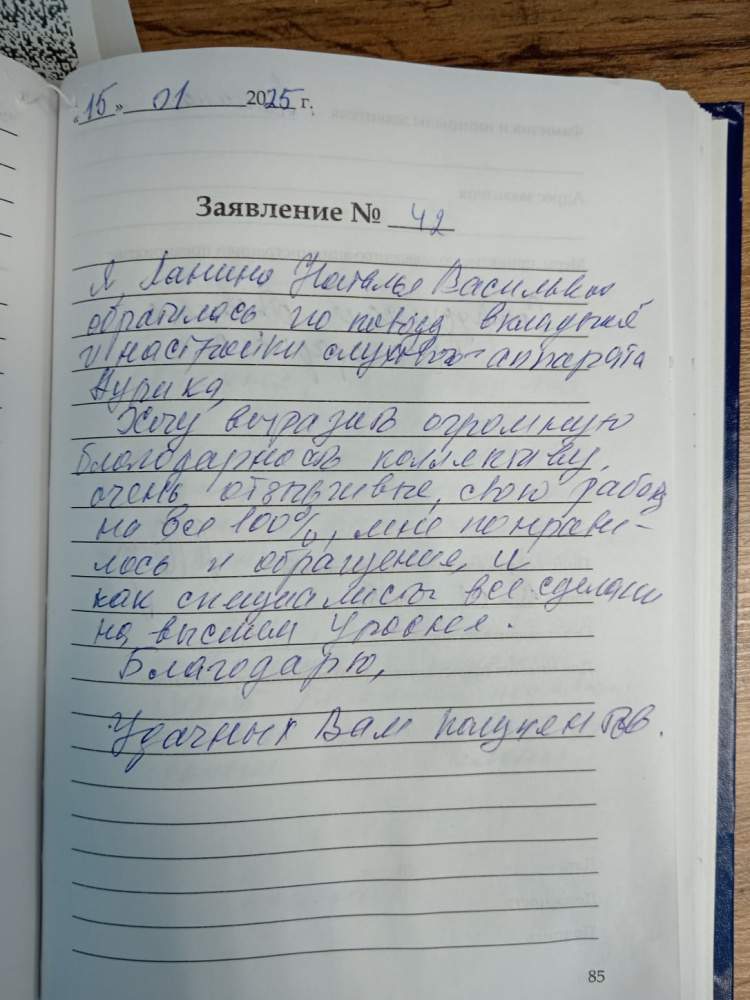 «15» 01 2025 г.
Заявление № 42
Я, Ханина Наталья Васильевна
обратилась по поводу вкладышей
и настройки слухового аппарата
Аурика,
Хочу выразить огромную
благодарность коллективу,
очень отзывчивые, свою работу
на все 100%, мне понрави-
лось и обращение, и
как специалисты все сделали
на высшем уровне.
Благодарю,
Удачных Вам пациентов.
85